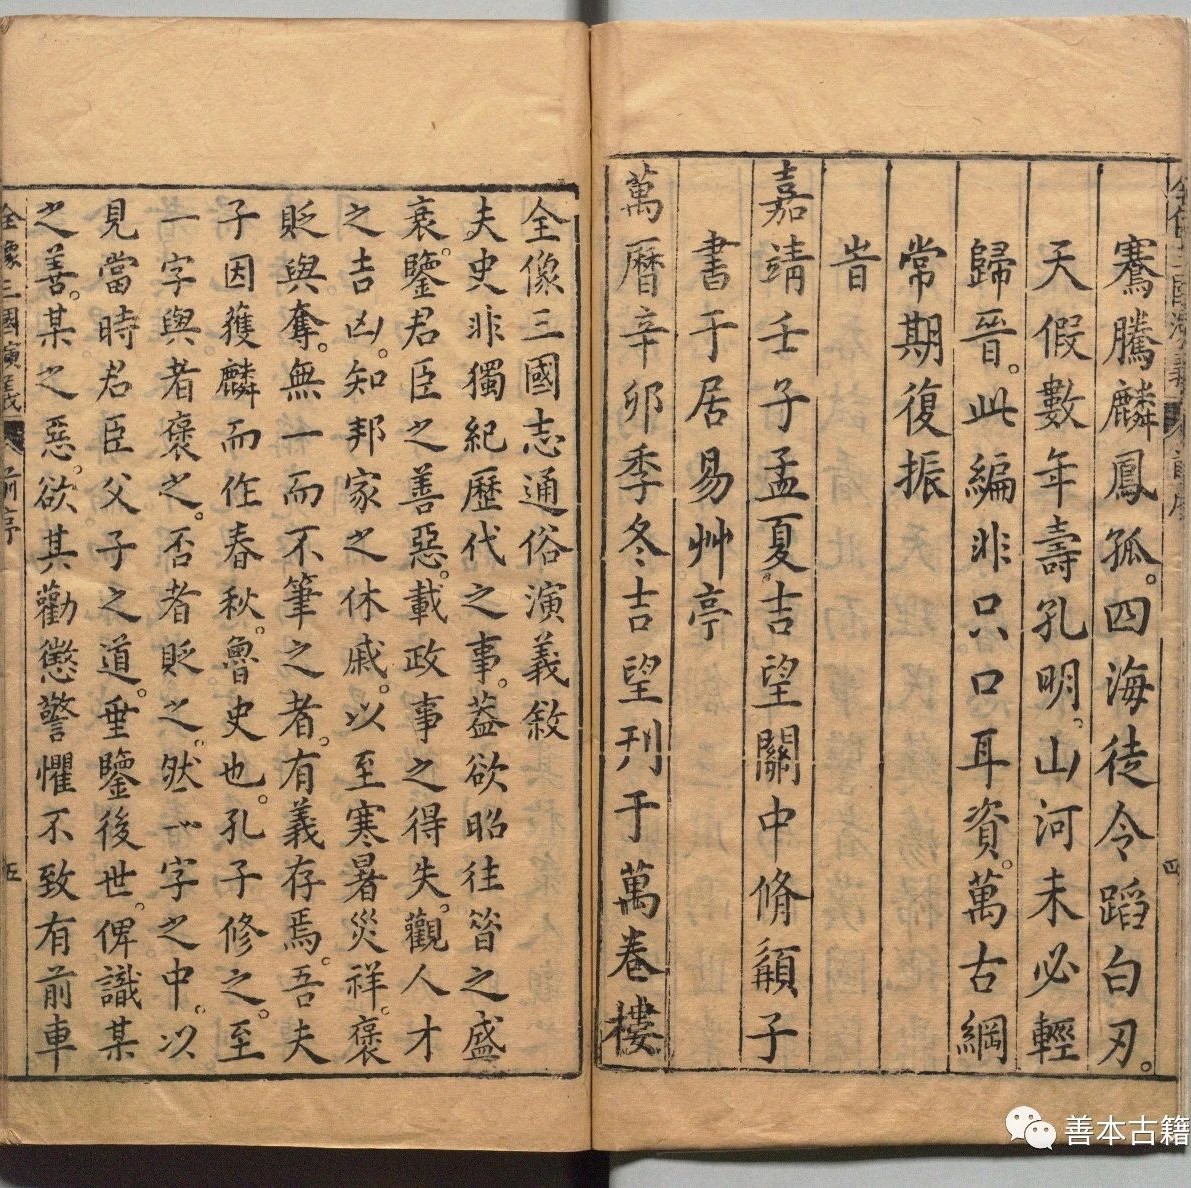 騫騰麟鳳孤。四海徒令蹈白刃。
天假數年壽孔明。山河未必輕
歸晉。此編非只口耳資。萬古綱
常期復振
旹
嘉靖壬子孟夏吉望關中脩髯子
書于居易艸亭
萬曆辛卯季冬吉望刊于萬卷樓
全像三國志通俗演義敘
夫史非獨紀歷代之事。蓋欲昭往昔之盛
衰。鑒君臣之善惡。載政事之得失。觀人才
之吉凶。知邦家之休戚。以至寒暑災祥。褒
貶與奪。無一而不筆之者。有義存焉。吾夫
子因獲麟而作春秋。魯史也。孔子修之。至
一字與者褒之。否者貶之。然一字之中。以
見當時君臣父子之道。垂鑒後世。俾識某
之善。某之惡。欲其勸懲警懼不致有前車
全像三國演義
前序
五
四
善本古籍